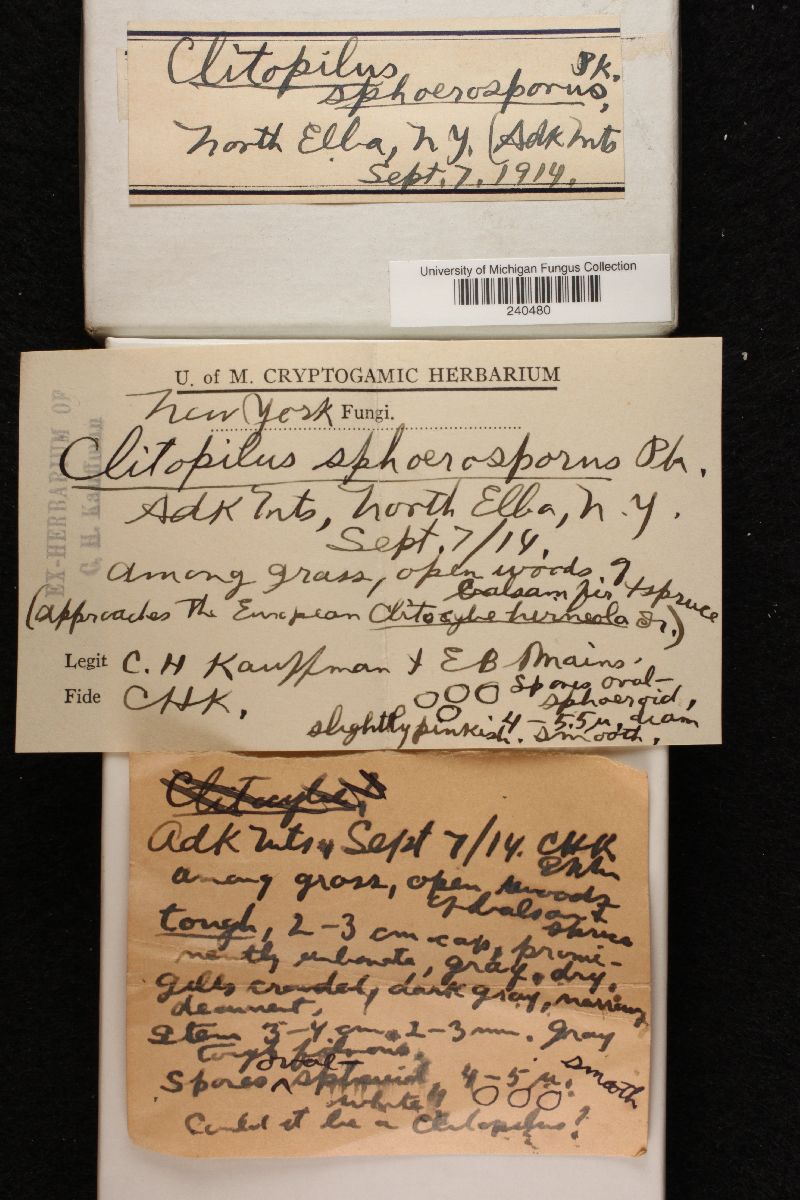 Clitopilus Pk.
sphoerosporus,
North Elba, N.Y. (Adk Mts
Sept. 7. 1914.
University of Michigan Fungus Collection
240480
U. of M. CRYPTOGAMIC HERBARIUM
New York Fungi.
Clitopilus sphoerosporus Pk.
Adk Mts, North Elba, N.Y.
Sept. 7/14.
among grass, open woods of
balsam fir & spruce
(approaches the European Clitocybe hirneola Fr.)
Legit C. H Kauffman & E B Mains.
Fide CHK.
Spores oval-
sphoeroid,
slightly pinkish. 4-5.5 µ, diam
smooth.
EX-HERBARIUM OF
C. H. Kauffman
Clitocybe
Adk Mts, Sept 7/14. CHK
EBM
among grass, open woods
of balsam &
spruce
tough, 2-3 cm cap, promi-
nently umbonate, gray, dry.
gills crowded, dark gray, narrow,
decurrent,
Stem 3-4 cm, 2-3 mm. gray
tough
oval-
Spores ^ sphoeroid 4-5 µ. smooth
white
Could it be a Clitopilus?